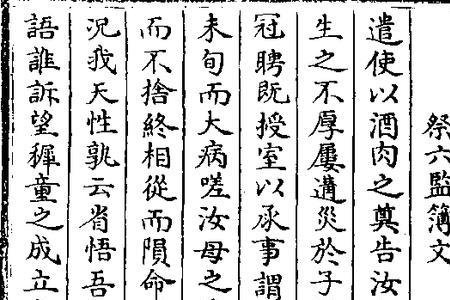 祭六監簿文
遣使以酒肉之奠告汝
生之不厚屢遘災於子
冠聘既授室以承事謂
未旬而大病嗟汝母之
而不捨終相從而隕命
況我天性孰云省悟吾
語誰訴望穉童之成立